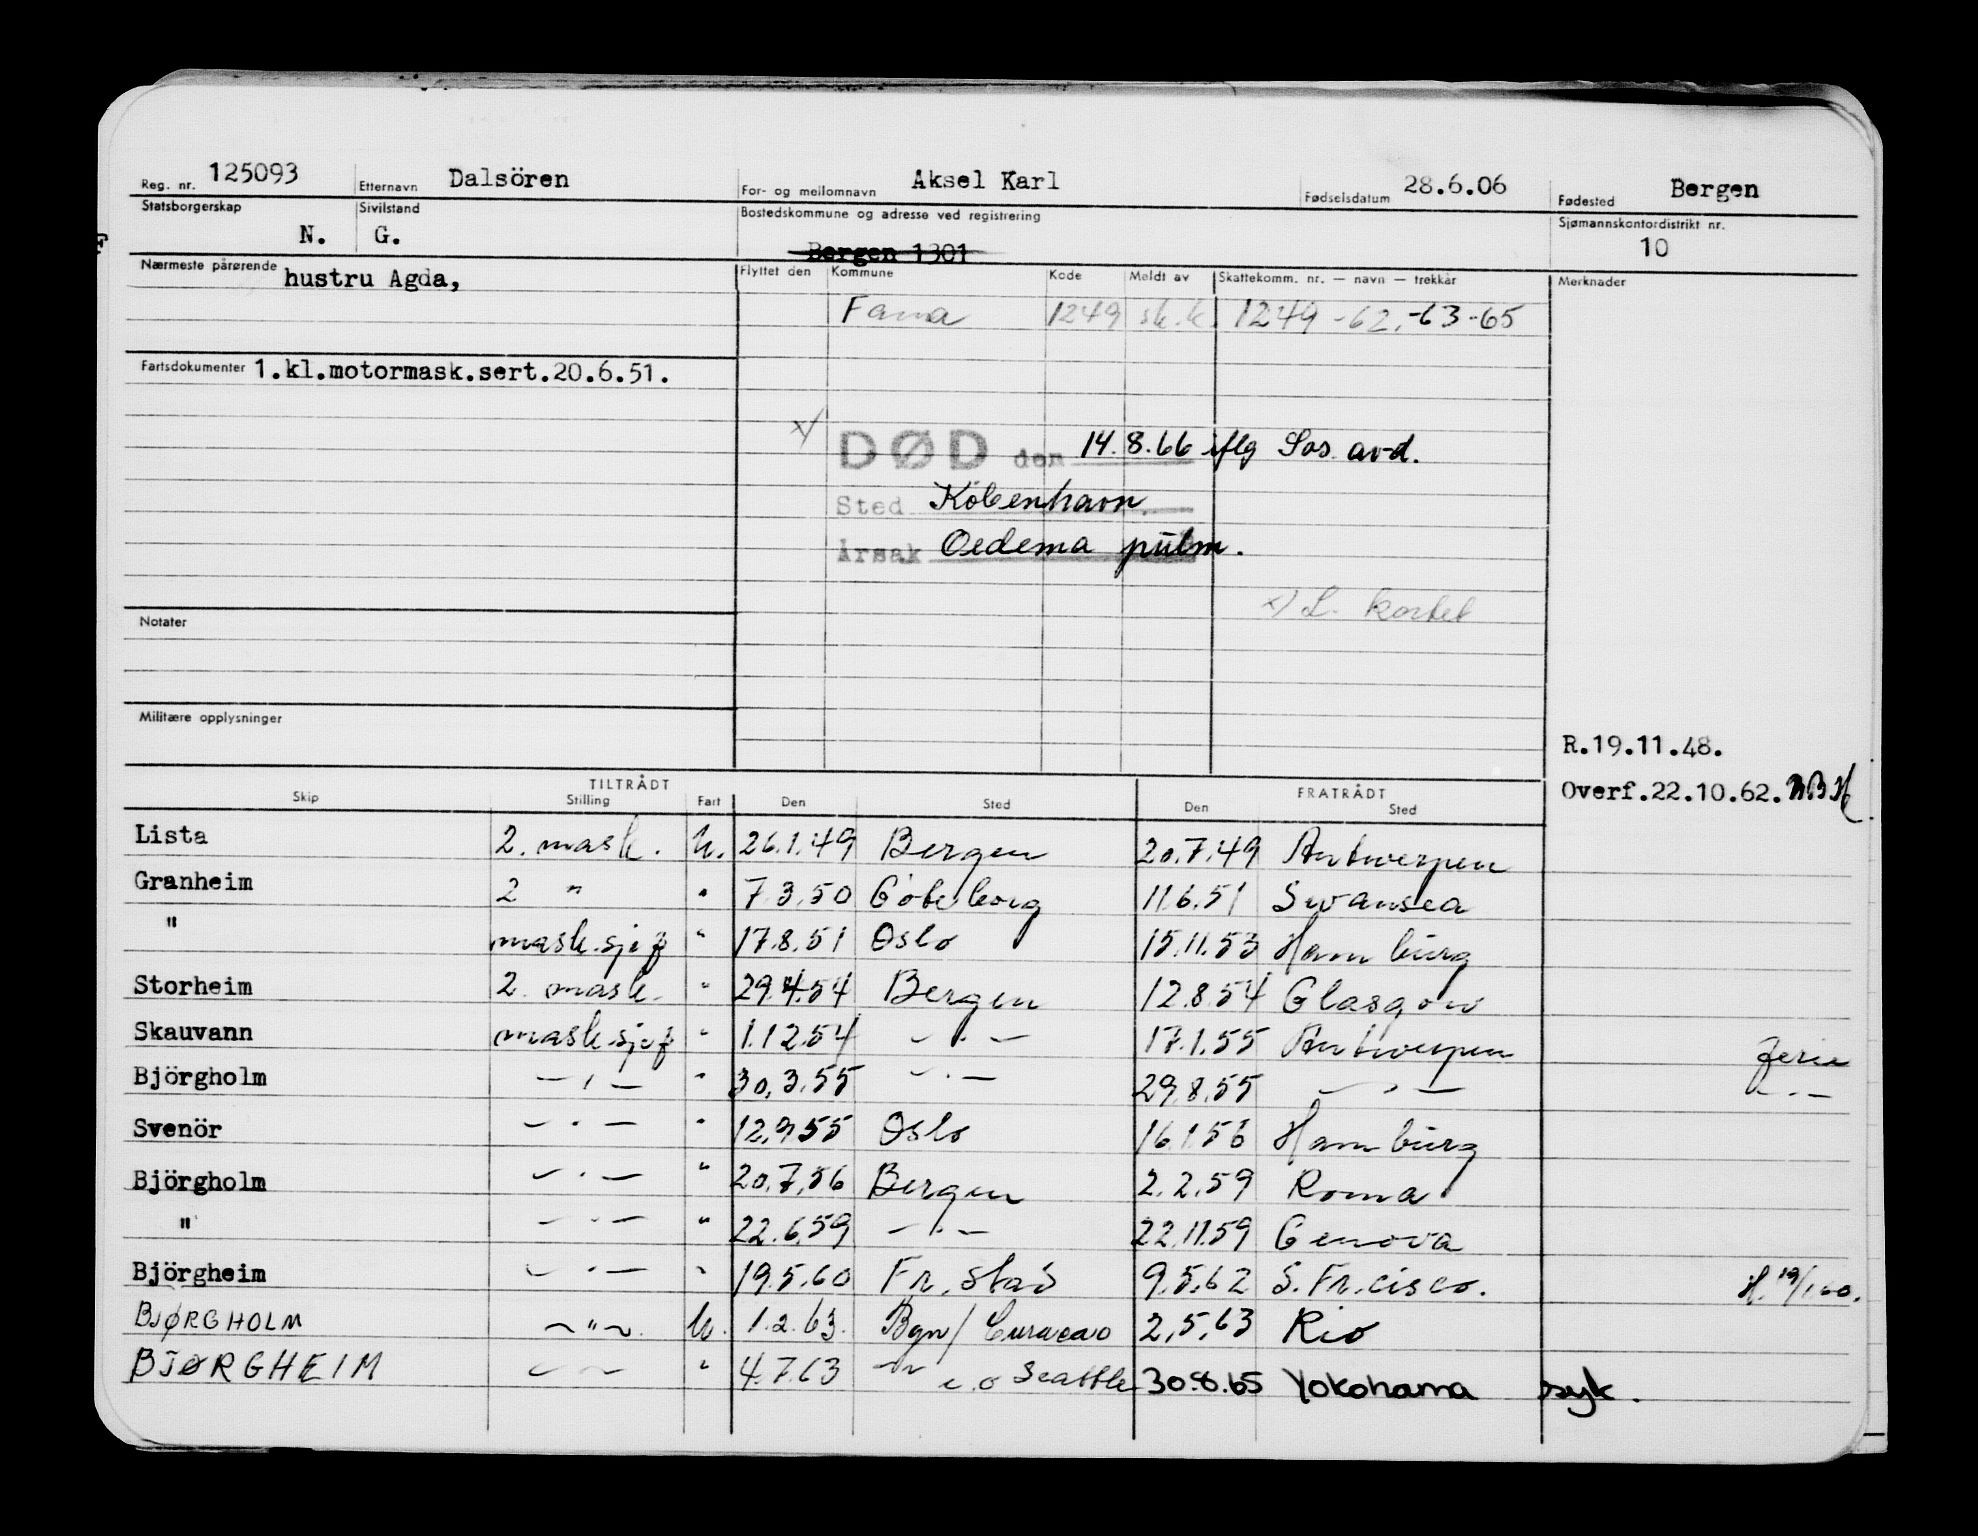 Reg. nr. 125093 Etternavn Dalsören For- og mellomnavn Aksel Karl Fødselsdatum 28.6.06 Fødested Bergen
Statsborgerskap N. Sivilstand G. Bostedskommune og adresse ved registrering Bergen 1301 Sjømannskontordistrikt nr. 10
Nærmeste pårørende hustru Agda, Flyttet den Kommune Kode Meldt av Skattekomm. nr. — navn — trekkår Merknader
Fana 1249 sk.k. 1249 -62,-63-65
Fartsdokumenter 1.kl.motormask.sert.20.6.51.
x/ DØD den 14.8.66 iflg Sos av-d.
Sted Köbenhavn
Årsak Oedema pulm.
x) L. kortet
Notater
Militære opplysninger
R.19.11.48.
Overf.22.10.62.
TILTRÅDT FRATRÅDT
Skip Stilling Fart Den Sted Den Sted
Lista 2. mask. U. 26.1.49 Bergen 20.7.49 Antwerpen
Granheim 2 " " 7.3.50 Göteborg 11.6.51 Swansea
" mask.sjef " 17.8.51 Oslo 15.11.53 Hamburg
Storheim 2. mask. " 29.4.54 Bergen 12.8.54 Glasgow
Skauvann mask.sjef " 1.12.54 — " — 17.1.55 Antwerpen ferie
Björgholm — " — " 30.3.55 — " — 29.8.55 — " — — " —
Svenör — " — " 12.9.55 Oslo 16.1.56 Hamburg
Björgholm — " — " 20.7.56 Bergen 2.2.59 Roma
" — " — " 22.6.59 — " — 22.11.59 Genova
Björgheim — " — " 19.5.60 Fr.stad 9.5.62 S.Fr.cisco.
BJØRGHOLM — " — U. 1.2.63. Bgn/ Curacao 2.5.63 Rio
BJØRGHEIM — " — " 4.7.63 — " — Seattle 30.8.65 Yokohama syk.